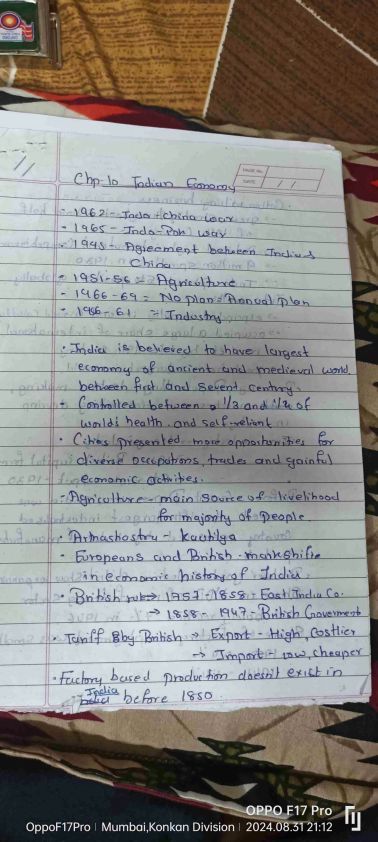 PAGE NO.
DATE / /
Chp-10 Indian Economy
- 1962 - Indo-China war
- 1965 - Indo-Pak war
- Agreement between India &
China
- 1951-56 = Agriculture
- 1966-69 = No plan = Annual plan
- 1956-61 = Industry
• India is believed to have largest
economy of ancient and medieval world
between first and sevent century
- Controlled between 1/3 and 1/4 of
world's health and self-reliant
• Cities presented more opportunities for
diverse occupations, trades and gainful
economic activities.
- Agriculture - main source of livelihood
for majority of people.
• Arthashastra - Kautilya
- Europeans and British - mark shift
in economic history of India.
• British rule → 1757-1858 - East India Co.
→ 1858-1947 - British Government
• Tariff by British → Export - High, Costlier
→ Import - low, cheaper
• Factory based production doesn't exist in
India before 1850.
OPPO F17 Pro
OppoF17Pro | Mumbai,Konkan Division | 2024.08.31 21:12